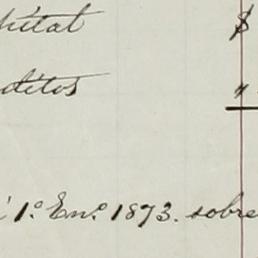 pital $
ditos "
1º Enº 1873. sobre